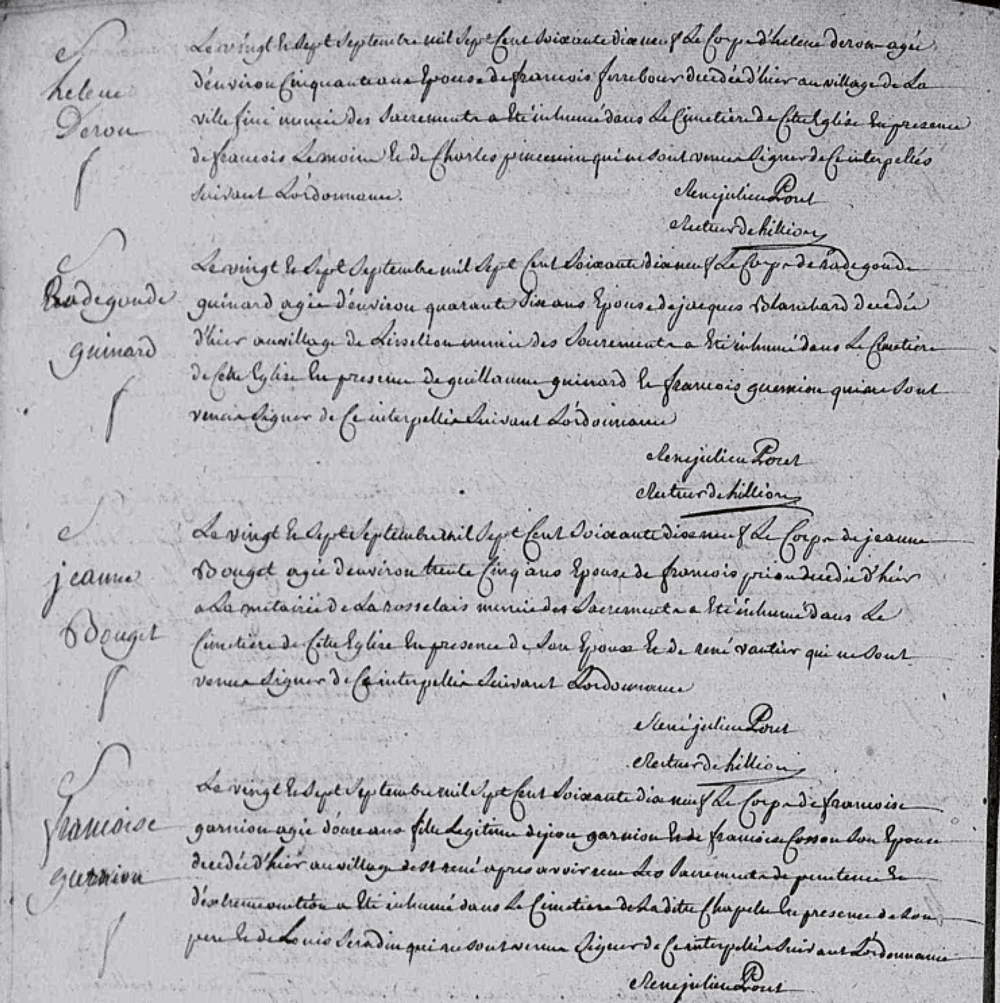 S
helene
Derou
Le vingt et Sept Septembre mil Sept Cent Soixante dix neuf Le Corps d'helene derou agée
d'environ Cinquante ans Epouse de francois ferrebour decedée d'hier au village de La
ville fini munie des Sacrements a Eté inhumé dans Le Cimetiere de Cette Eglise En presence
de francois Lemoine Et de Charles pincemin qui ne sont venus Signer de Ce interpellés
Suivant L'ordonnance.
René julien Poret
Recteur de hillion
S
Radegonde
guinard
Le vingt et Sept Septembre mil Sept Cent Soixante dix neuf Le Corps de radegonde
guinard agée d'environ quarante Six ans Epouse de jacques Blanchard decedée
d'hier au village de munie des Sacrements a Eté inhumé dans Le Cimetiere
de Cette Eglise En presence de guillaume guinard Et francois guernion qui ne sont
venus Signer de Ce interpellés Suivant L'ordonnance
René julien Poret
Recteur de hillion
S
jeanne
Bouget
Le vingt et Sept Septembre mil Sept Cent Soixante dix neuf Le Corps de jeanne
Bouget agée d'environ trente Cinq ans Epouse de francois decedée d'hier
a La metairie de La rosselais munie des Sacrements a Eté inhumé dans Le
Cimetiere de Cette Eglise En presence de Son Epoux Et de rené vautier qui ne sont
venus Signer de Ce interpellés Suivant L'ordonnance
René julien Poret
Recteur de hillion
S
francoise
guernion
Le vingt et Sept Septembre mil Sept Cent Soixante dix neuf Le Corps de francoise
garnion agée d'onze ans fille Legitime de jean garnion Et de francoise Cosson Son Epouse
decedée d'hier au village de St rené apres avoir recu Les Sacrements de penitence Et
d'extreme onction a Eté inhumé dans Le Cimetiere de La ditte Chapelle En presence de Son
pere Et de Louis Seradin qui ne sont venus Signer de Ce interpellés Suivant L'ordonnance
René julien Poret